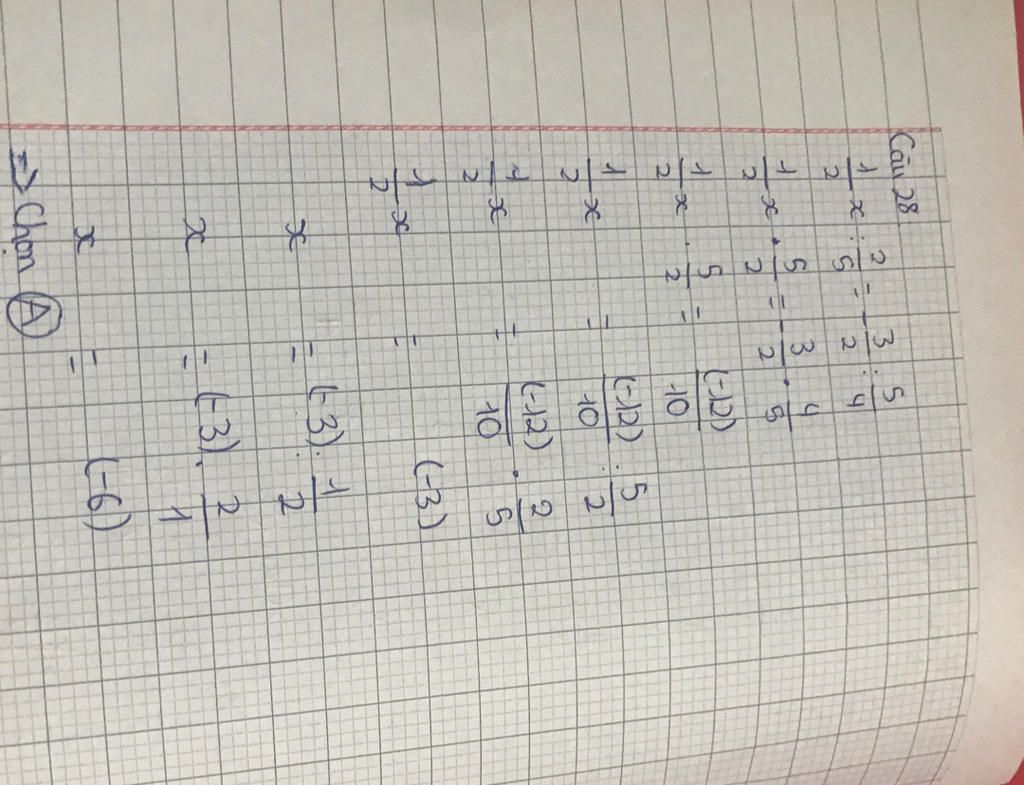 Câu 28
1/2 x : 2/5 = -3/2 : 5/4
1/2 x . 5/2 = -3/2 . 4/5
1/2 x . 5/2 = (-12)/10
1/2 x = (-12)/10 : 5/2
1/2 x = (-12)/10 . 2/5
1/2 x = (-3)
x = (-3) : 1/2
x = (-3) . 2/1
x = (-6)
=> Chọn A